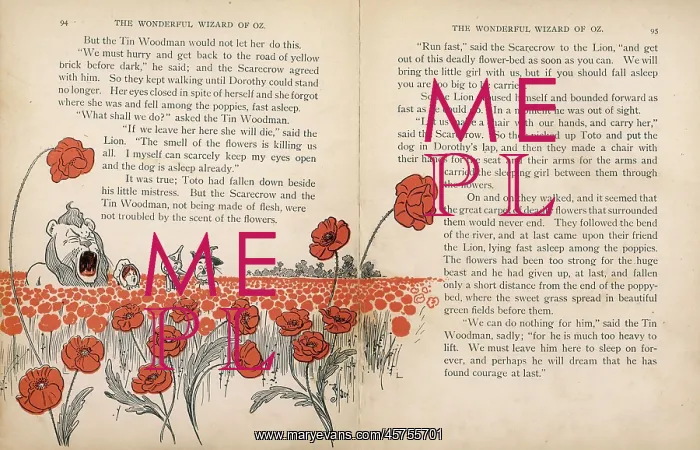 94 THE WONDERFUL WIZARD OF OZ.
But the Tin Woodman would not let her do this.
"We must hurry and get back to the road of yellow
brick before dark," he said; and the Scarecrow agreed
with him. So they kept walking until Dorothy could stand
no longer. Her eyes closed in spite of herself and she forgot
where she was and fell among the poppies, fast asleep.
"What shall we do?" asked the Tin Woodman.
"If we leave her here she will die," said the
Lion. "The smell of the flowers is killing us
all. I myself can scarcely keep my eyes open
and the dog is asleep already."
It was true; Toto had fallen down beside
his little mistress. But the Scarecrow and the
Tin Woodman, not being made of flesh, were
not troubled by the scent of the flowers.
THE WONDERFUL WIZARD OF OZ. 95
"Run fast," said the Scarecrow to the Lion, "and get
out of this deadly flower-bed as soon as you can. We will
bring the little girl with us, but if you should fall asleep
you are too big to be carried."
So the Lion aroused himself and bounded forward as
fast as he could go. In a moment he was out of sight.
"Let us make a chair with our hands, and carry her,"
said the Scarecrow. So they picked up Toto and put the
dog in Dorothy's lap, and then they made a chair with
their hands for the seat and their arms for the arms and
carried the sleeping girl between them through
the flowers.
On and on they walked, and it seemed that
the great carpet of deadly flowers that surrounded
them would never end. They followed the bend
of the river, and at last came upon their friend
the Lion, lying fast asleep among the poppies.
The flowers had been too strong for the huge
beast and he had given up, at last, and fallen
only a short distance from the end of the poppy-
bed, where the sweet grass spread in beautiful
green fields before them.
"We can do nothing for him," said the Tin
Woodman, sadly; "for he is much too heavy to
lift. We must leave him here to sleep on for-
ever, and perhaps he will dream that he has
found courage at last."
ME
PL
ME
PL
www.maryevans.com/45755701